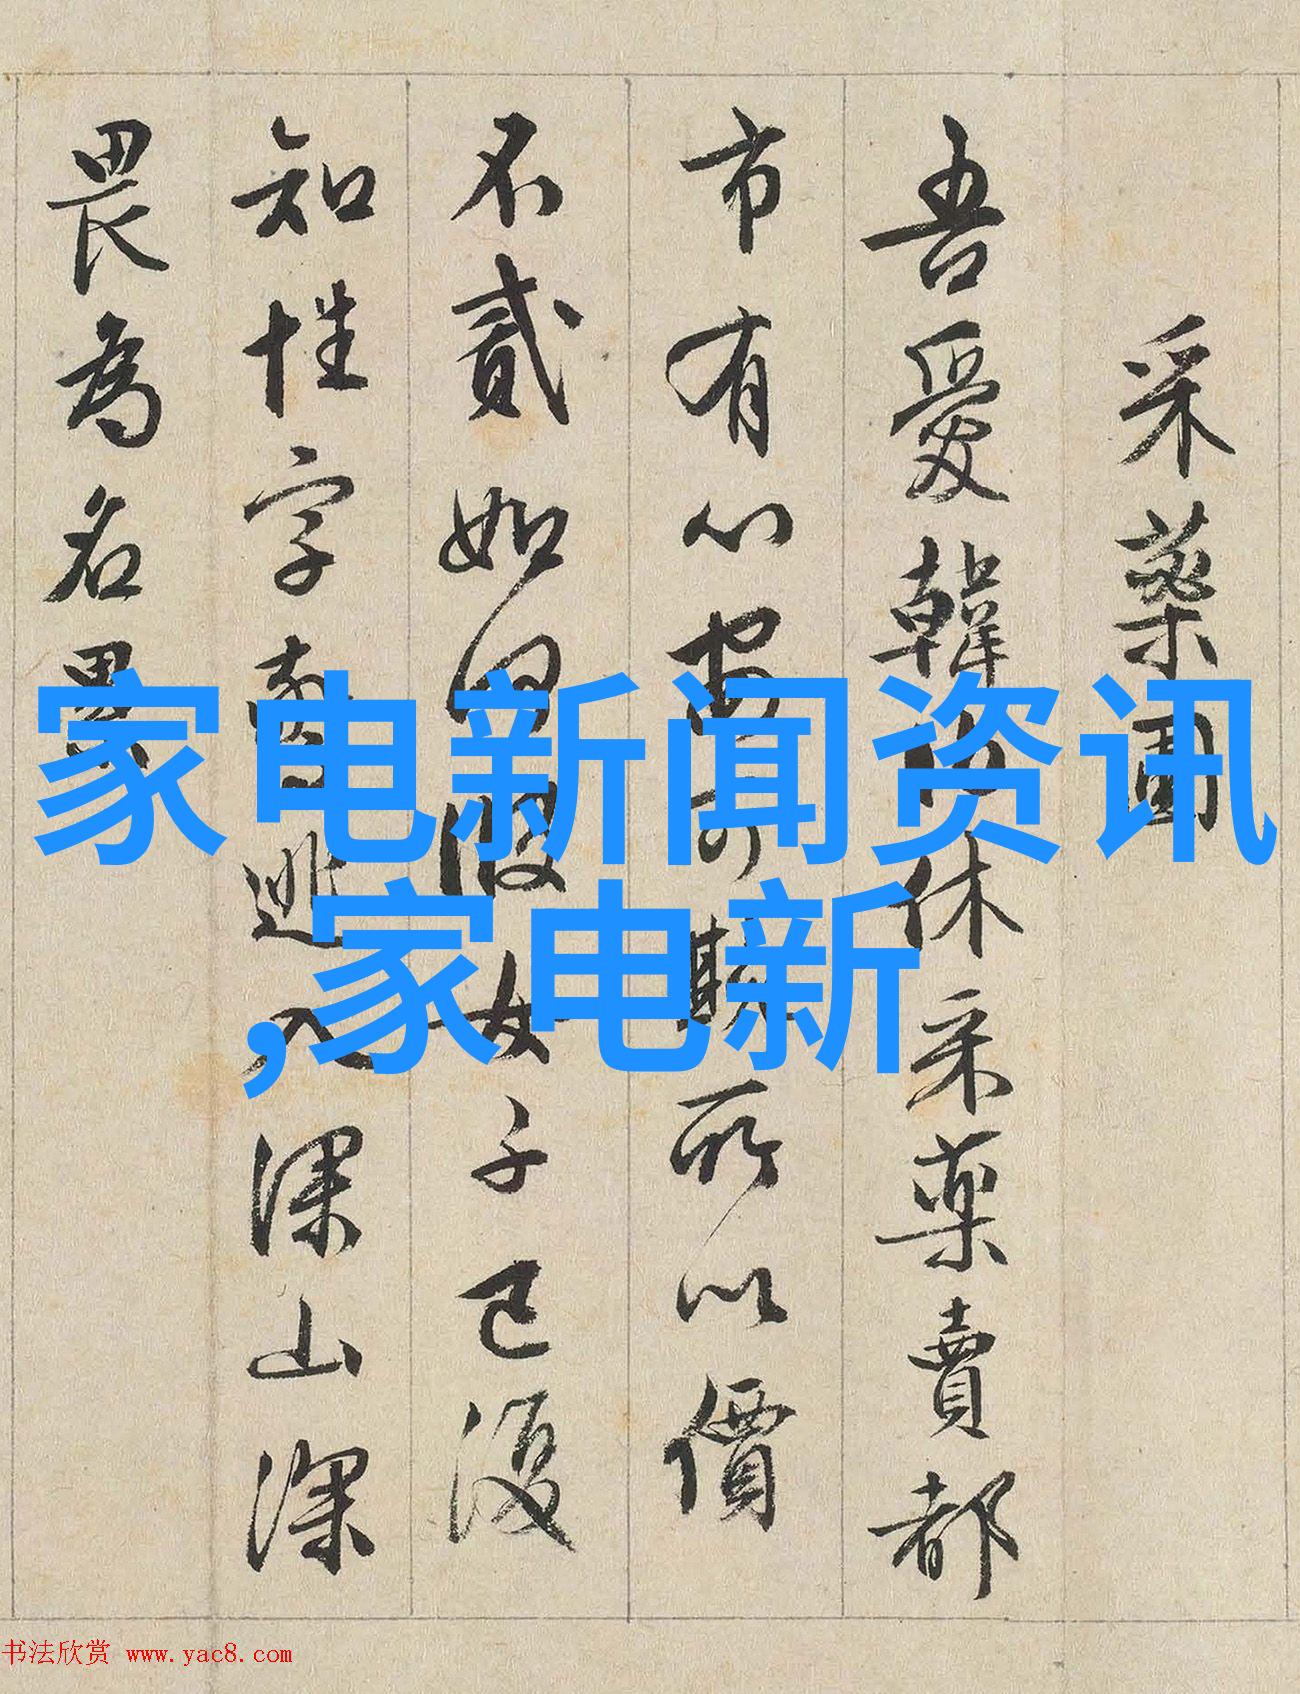 采藥圖
吾愛韓伯休采藥賣都
市有心安可欺所以價
不貳如何假女子已復
知姓字高逃入深山深
畏為名畏
家电新闻资讯
,家电新
书法欣赏 www.yac8.com